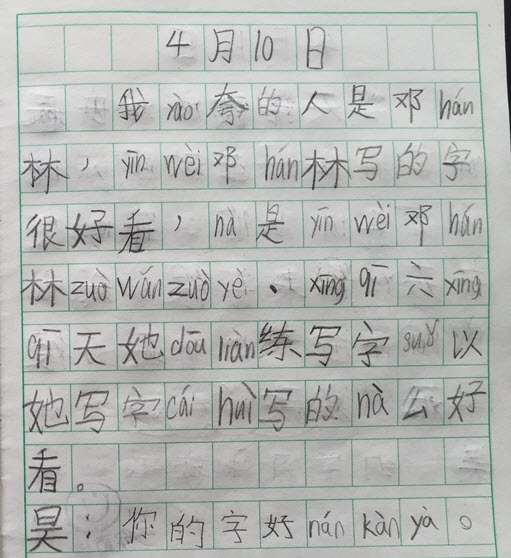 4月10日
我xào夸的人是邓hán
林，yīn wèi邓hán林写的字
很好看，nà是yīn wèi邓hán
林zuò wán zuò yè、xīng qī六xīng
qī天她dōu liàn练写字suǒ以
她写字cái huì写的nà公好
看。
昊：你的字好nán kàn yà。